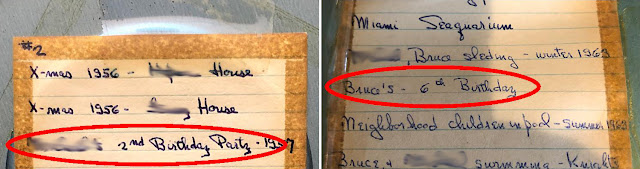 #2
X-mas 1956 - House
X-mas 1956 - House
2nd Birthday Party - 1957
Miami Seaquarium
, Bruce sleding - winter 1963
Bruce's - 6th Birthday
Neighborhood children in pool - Summer 1963
Bruce + swimming - Knights